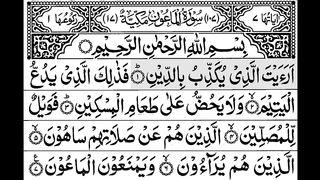 اٰيَاتُهَا ٧ (١٠٧) سُوْرَةُ الْمَاعُوْنِ مَكِّيَّةٌ (١٧) رُكُوْعُهَا ١
بِسْمِ اللّٰهِ الرَّحْمٰنِ الرَّحِيْمِ
اَرَءَيْتَ الَّذِیْ يُكَذِّبُ بِالدِّيْنِ ۝١ فَذٰلِكَ الَّذِیْ يَدُعُّ
الْيَتِيْمَ ۝٢ وَلَا يَحُضُّ عَلٰى طَعَامِ الْمِسْكِيْنِ ۝٣ فَوَيْلٌ
لِّلْمُصَلِّيْنَ ۝٤ الَّذِيْنَ هُمْ عَنْ صَلَاتِهِمْ سَاهُوْنَ ۝٥
الَّذِيْنَ هُمْ يُرَآءُوْنَ ۝٦ وَيَمْنَعُوْنَ الْمَاعُوْنَ ۝٧